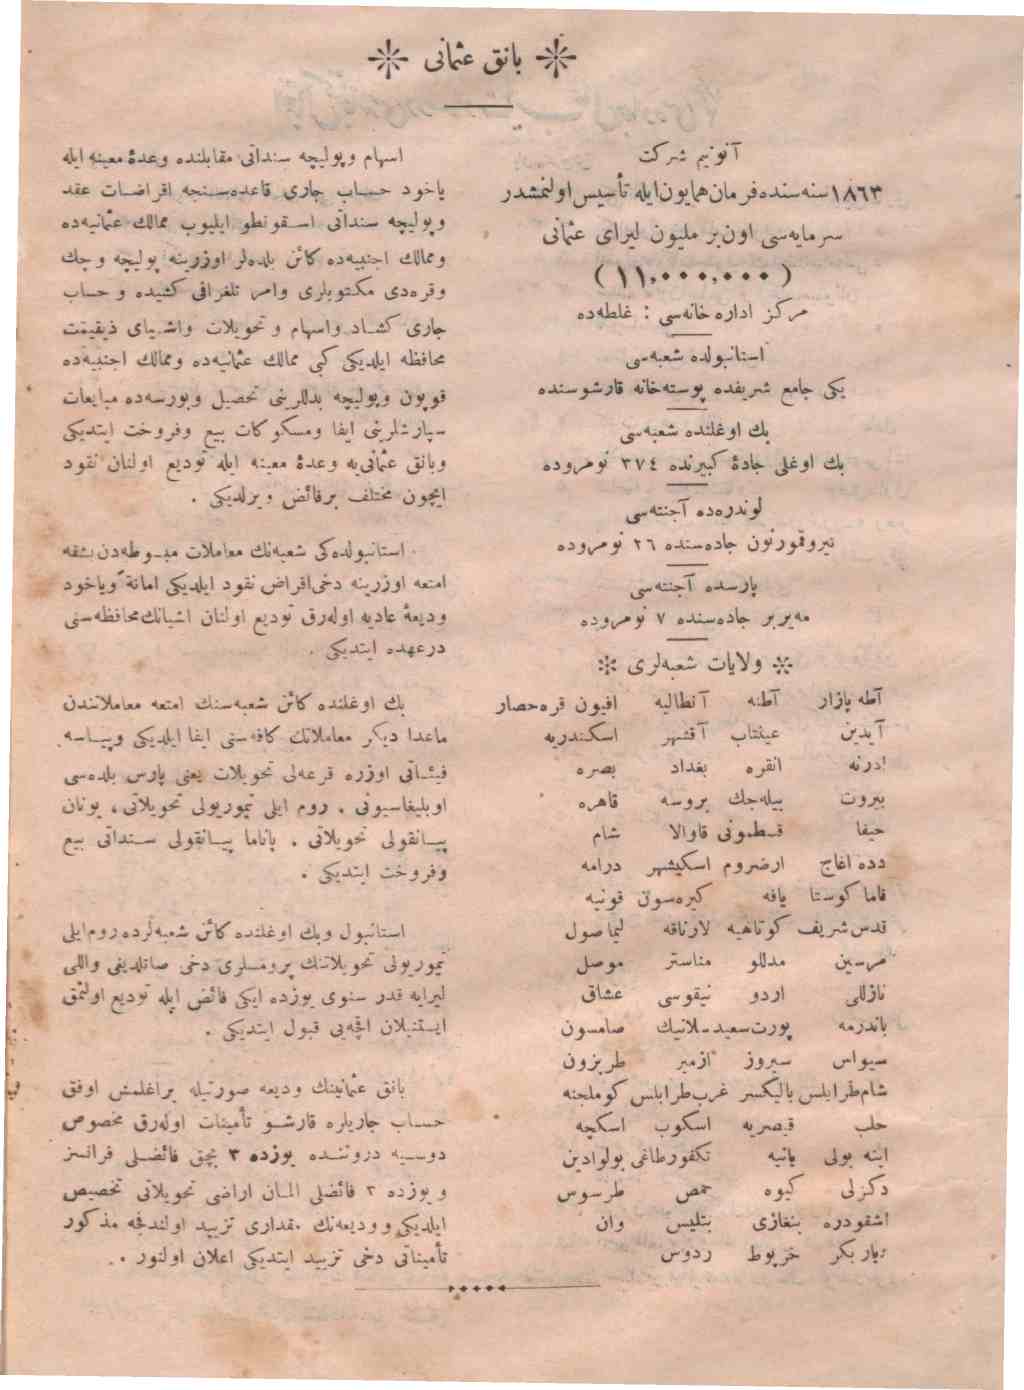 بانق عثمانى
آنونيم شركت
١٨٦٣ سنه سنده فرمان همايون ايله تأسيس اولنمشدر
سرمايه‌سى اون بر مليون ليراى عثمانى
(١١,٠٠٠,٠٠٠)
مركز اداره خانه‌سى : غلطه‌ده
استانبولده شعبه‌سى
يكى جامع شريفده پوسته‌خانه قارشوسنده
بك اوغلنده شعبه‌سى
بك اوغلى جادهٔ كبيرنده ٣٧٤ نومروده
لوندره‌ده آجنته‌سى
نيروقمورتون جاده‌سنده ٢٦ نومروده
پارسده آجنته‌سى
مه‌يربر جاده‌سنده ٧ نومروده
ولايات شعبه‌لرى
آطه پازار آطنه آنطاليه افيون قره‌حصار
آيدين عينتاب آقشهر اسكندريه
ادرنه انقره بغداد بصره
بيروت بيله‌جك بروسه قاهره
حيفا قسطمونى قاوالا شام
دده اغاج ارضروم اسكيشهر درامه
فاماكوستا يافه كيره‌سون قونيه
قدس شريف كوتاهيه لارناقه ليماصول
مرسين مدللو مناستر موصل
نازللى اردو نيقوسى عشاق
باندرمه پورت‌سعيد سلانيك صامسون
سيواس سيروز ازمير طربزون
شام‌طرابلس باليكسر غرب‌طرابلس كوملجنه
حلب قيصريه اسكوب اسكچه
اينه بولى يانيه تكفورطاغى بولوادين
دكزلى كيوه حمص طرسوس
اشقودره بنغازى بتليس وان
ديار بكر خرپوط ردوس
اسهام و پوليچه سنداتى مقابلنده وعدهٔ معينه ايله
ياخود حساب جارى قاعده‌سنجه اقراضات عقد
و پوليچه سنداتى اسقونطو ايليوب ممالك عثمانيه‌ده
وممالك اجنبيه‌ده كائن بلده‌لر اوزرينه پوليچه و چك
وقره‌دى مكتوبلرى وامر تلغرافى كشيده و حساب
جارى كشاد واسهام و تحويلات واشياى ذيقيمت
محافظه ايلديكى كبى ممالك عثمانيه‌ده وممالك اجنبيه‌ده
قوپون و پوليچه بدللرينى تحصيل وبورسه‌ده مبايعات
سپارشلرينى ايفا ومسكوكات بيع وفروخت ايتديكى
وبانق عثمانى‌يه وعدهٔ معينه ايله توديع اولنان نقود
ايچون مختلف برفائض ويرلديكى .
استانبولده‌كى شعبه‌نك معاملات مبسوطه‌دن بشقه
امتعه اوزرينه دخى اقراض نقود ايلديكى امانةً وياخود
وديعهٔ عاديه اوله‌رق توديع اولنان اشيانك محافظه‌سنى
درعهده ايتديكى .
بك اوغلنده كائن شعبه‌سنك امتعه معاملاتندن
ماعدا ديكر معاملاتك كافه‌سنى ايفا ايلديكى وپياسه
فيئاتى اوزره قرعه‌لى تحويلات يعنى پارس بلده‌سى
اوبليغاسيونى ، روم ايلى تيموريولى تحويلاتى ، يونان
پيانقولى تحويلاتى . پاناما پيانقولى سنداتى بيع
وفروخت ايتديكى .
استانبول وبك اوغلنده كائن شعبه‌لرده روم‌ايلى
تيموريولى تحويلاتنك پرومسلرى دخى صاتلديغى واللى
ليرايه قدر سنوى يوزده ايكى فائض ايله توديع اولنمق
ايستنيلان اقچه‌يى قبول ايتديكى .
بانق عثمانينك وديعه صورتيله براغلمش اوفق
حساب جاريلره قارشو تأمينات اوله‌رق مخصوص
دوسيه دروننده يوزده ٣ بچق فائضلى فرانسز
و يوزده ٣ فائضلى المان اراضى تحويلاتى تخصيص
ايلديكى و وديعه‌نك مقدارى تزييد اولندقجه مذكور
تأميناتى دخى تزييد ايتديكى اعلان اولنور .